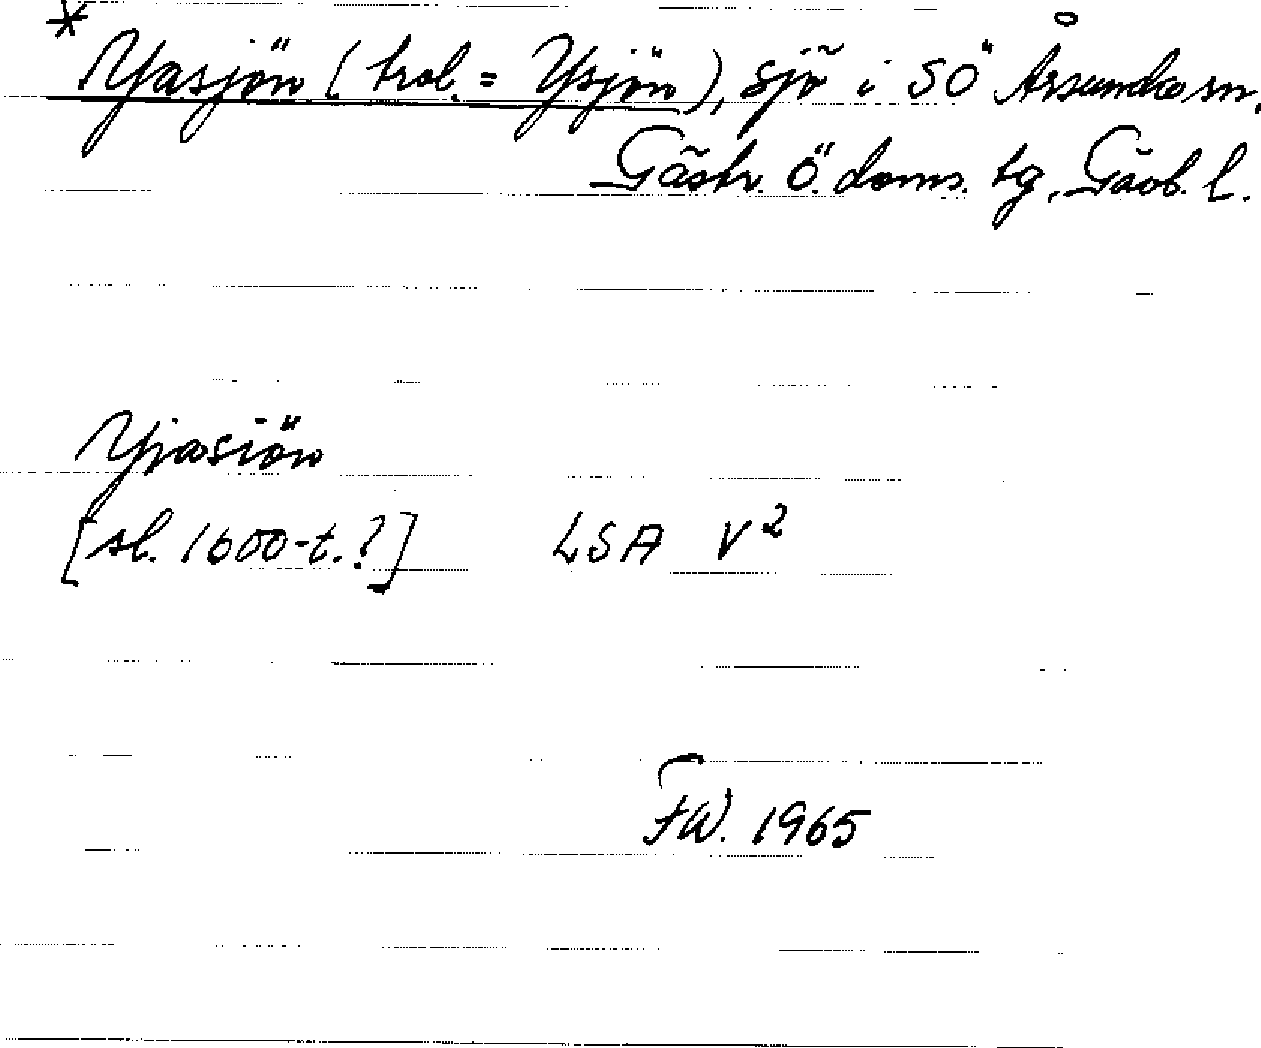 * Yasjön (trol. = Ysjön), sjö i SÖ Årsunda sn.
Gästr. Ö. doms. tg. Gävb. l.
Yiasiön
[sl. 1600-t.?] LSA V2
FW. 1965